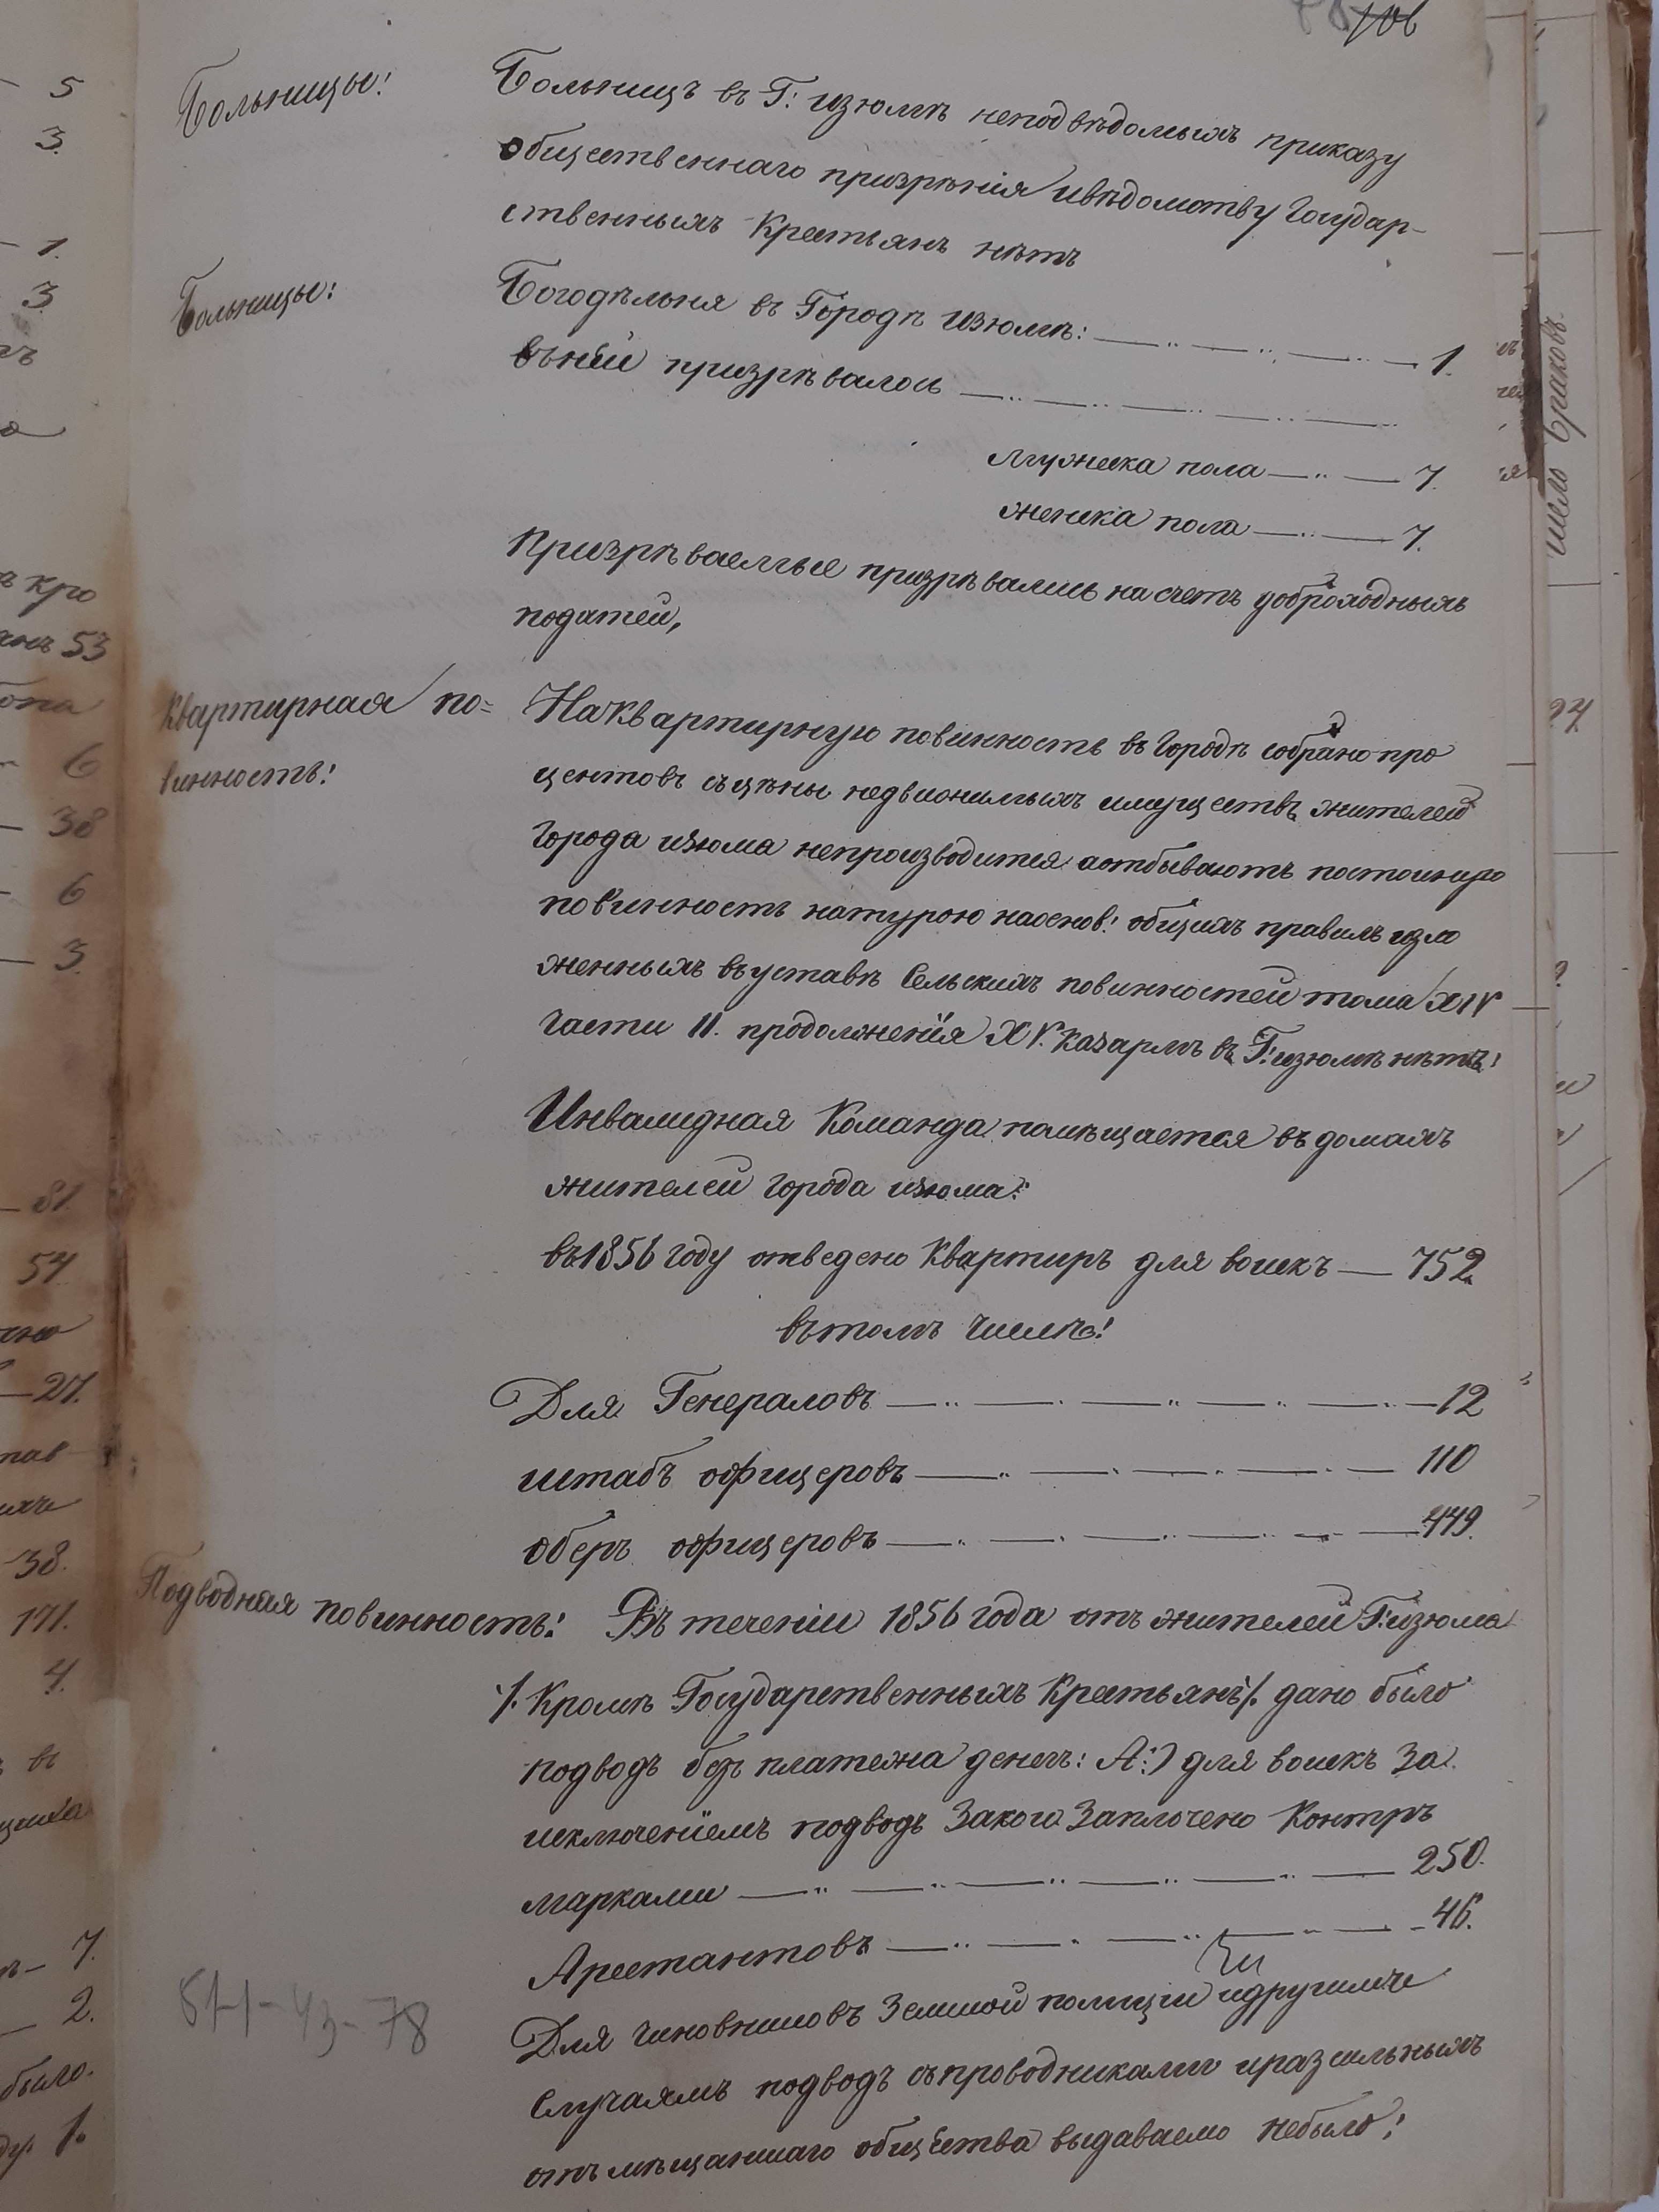 106
Больницы:
Больницъ въ Г: изюмѣ неподвѣдомыхъ приказу
общественнаго призрѣнія ивѣдомству Государ-
ственныхъ Крестьянъ нѣтъ
Больницы:
Богодѣльня въ Городѣ изюмѣ: 1.
въней призрѣвалось
мужеска пола 7.
женска пола 7.
Призрѣваемые призрѣвались на счетъ доброходныхъ
податей,
Квартирная по=
винность:
На квартирную повинность въ Городѣ собрано про
центовъ съцѣны недвижимыхъ имуществъ жителей
Города изюма непроизводится аотбываютъ постоиную
повинность натурою наоснов: общихъ правилъ изло
женныхъ въуставѣ Сельскихъ повинностей тома XIV
части II. продолженія XV. казармъ въ Г: изюмѣ нѣтъ:
Инвалидная Команда помѣщается въ домахъ
жителей Города изюма:
въ1856 году отведено Квартиръ для воискъ — 752
вътомъ числѣ:
Для Генераловъ 12
штабъ офицеровъ 110
оберъ офицеровъ 449.
Подводная повинность: Въ теченіи 1856 года отъ жителей Г: изюма
/. Кромѣ Государственныхъ Крестьянъ/. дано было
подводъ безъ платежа денегъ: А:) для воискъ За
исключеніемъ подводъ Закои Заплочено Контръ
марками 250.
Арестантовъ 46.
Для чиновниковъ Земской полиціи идругимъ
Случаямъ подводъ съпроводниками иразсильныхъ
отъ мѣщанскаго общества выдаваемо небыло:
511-43-78
5
3.
1.
3
кро
53
6
38
6
3.
81.
54
27.
38.
171.
4.
въ
7.
2.
было.
1.
число браковъ.